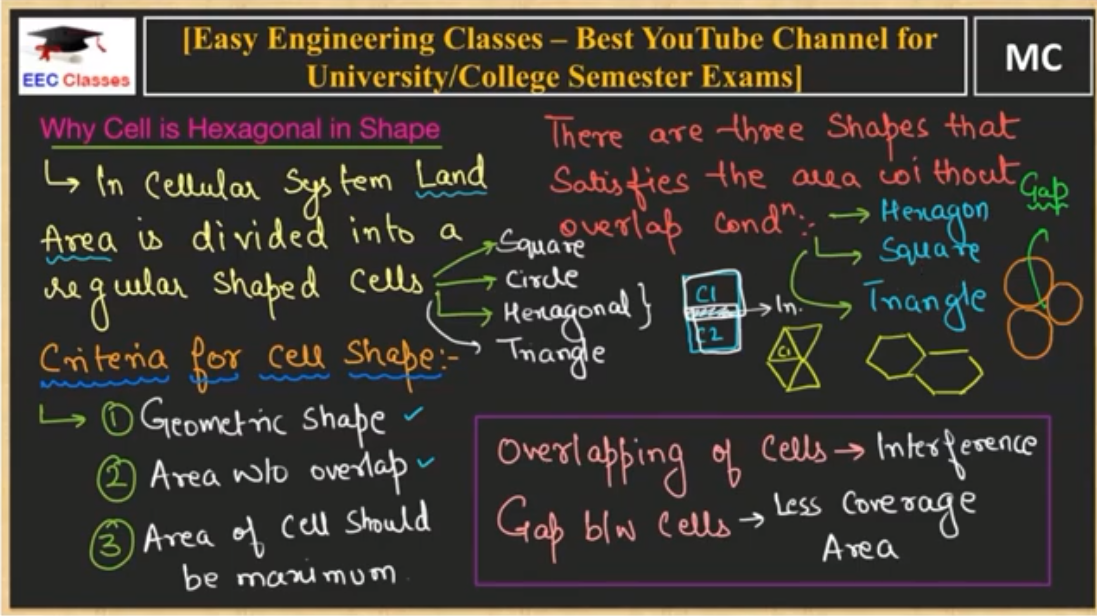 EEC Classes
[Easy Engineering Classes – Best YouTube Channel for
University/College Semester Exams]
MC
Why Cell is Hexagonal in Shape
↳ In Cellular System Land
Area is divided into a
regular shaped Cells
Square
Circle
Hexagonal }
Triangle
Criteria for Cell Shape:-
① Geometric shape ✓
② Area w/o overlap ✓
③ Area of Cell should
be maximum.
There are three Shapes that
Satisfies the area without
overlap condⁿ:
→ Hexagon
Square
Triangle
Gap
C1
C2
→ In.
C1
Overlapping of Cells → Interference
Gap b/w Cells → Less Coverage
Area